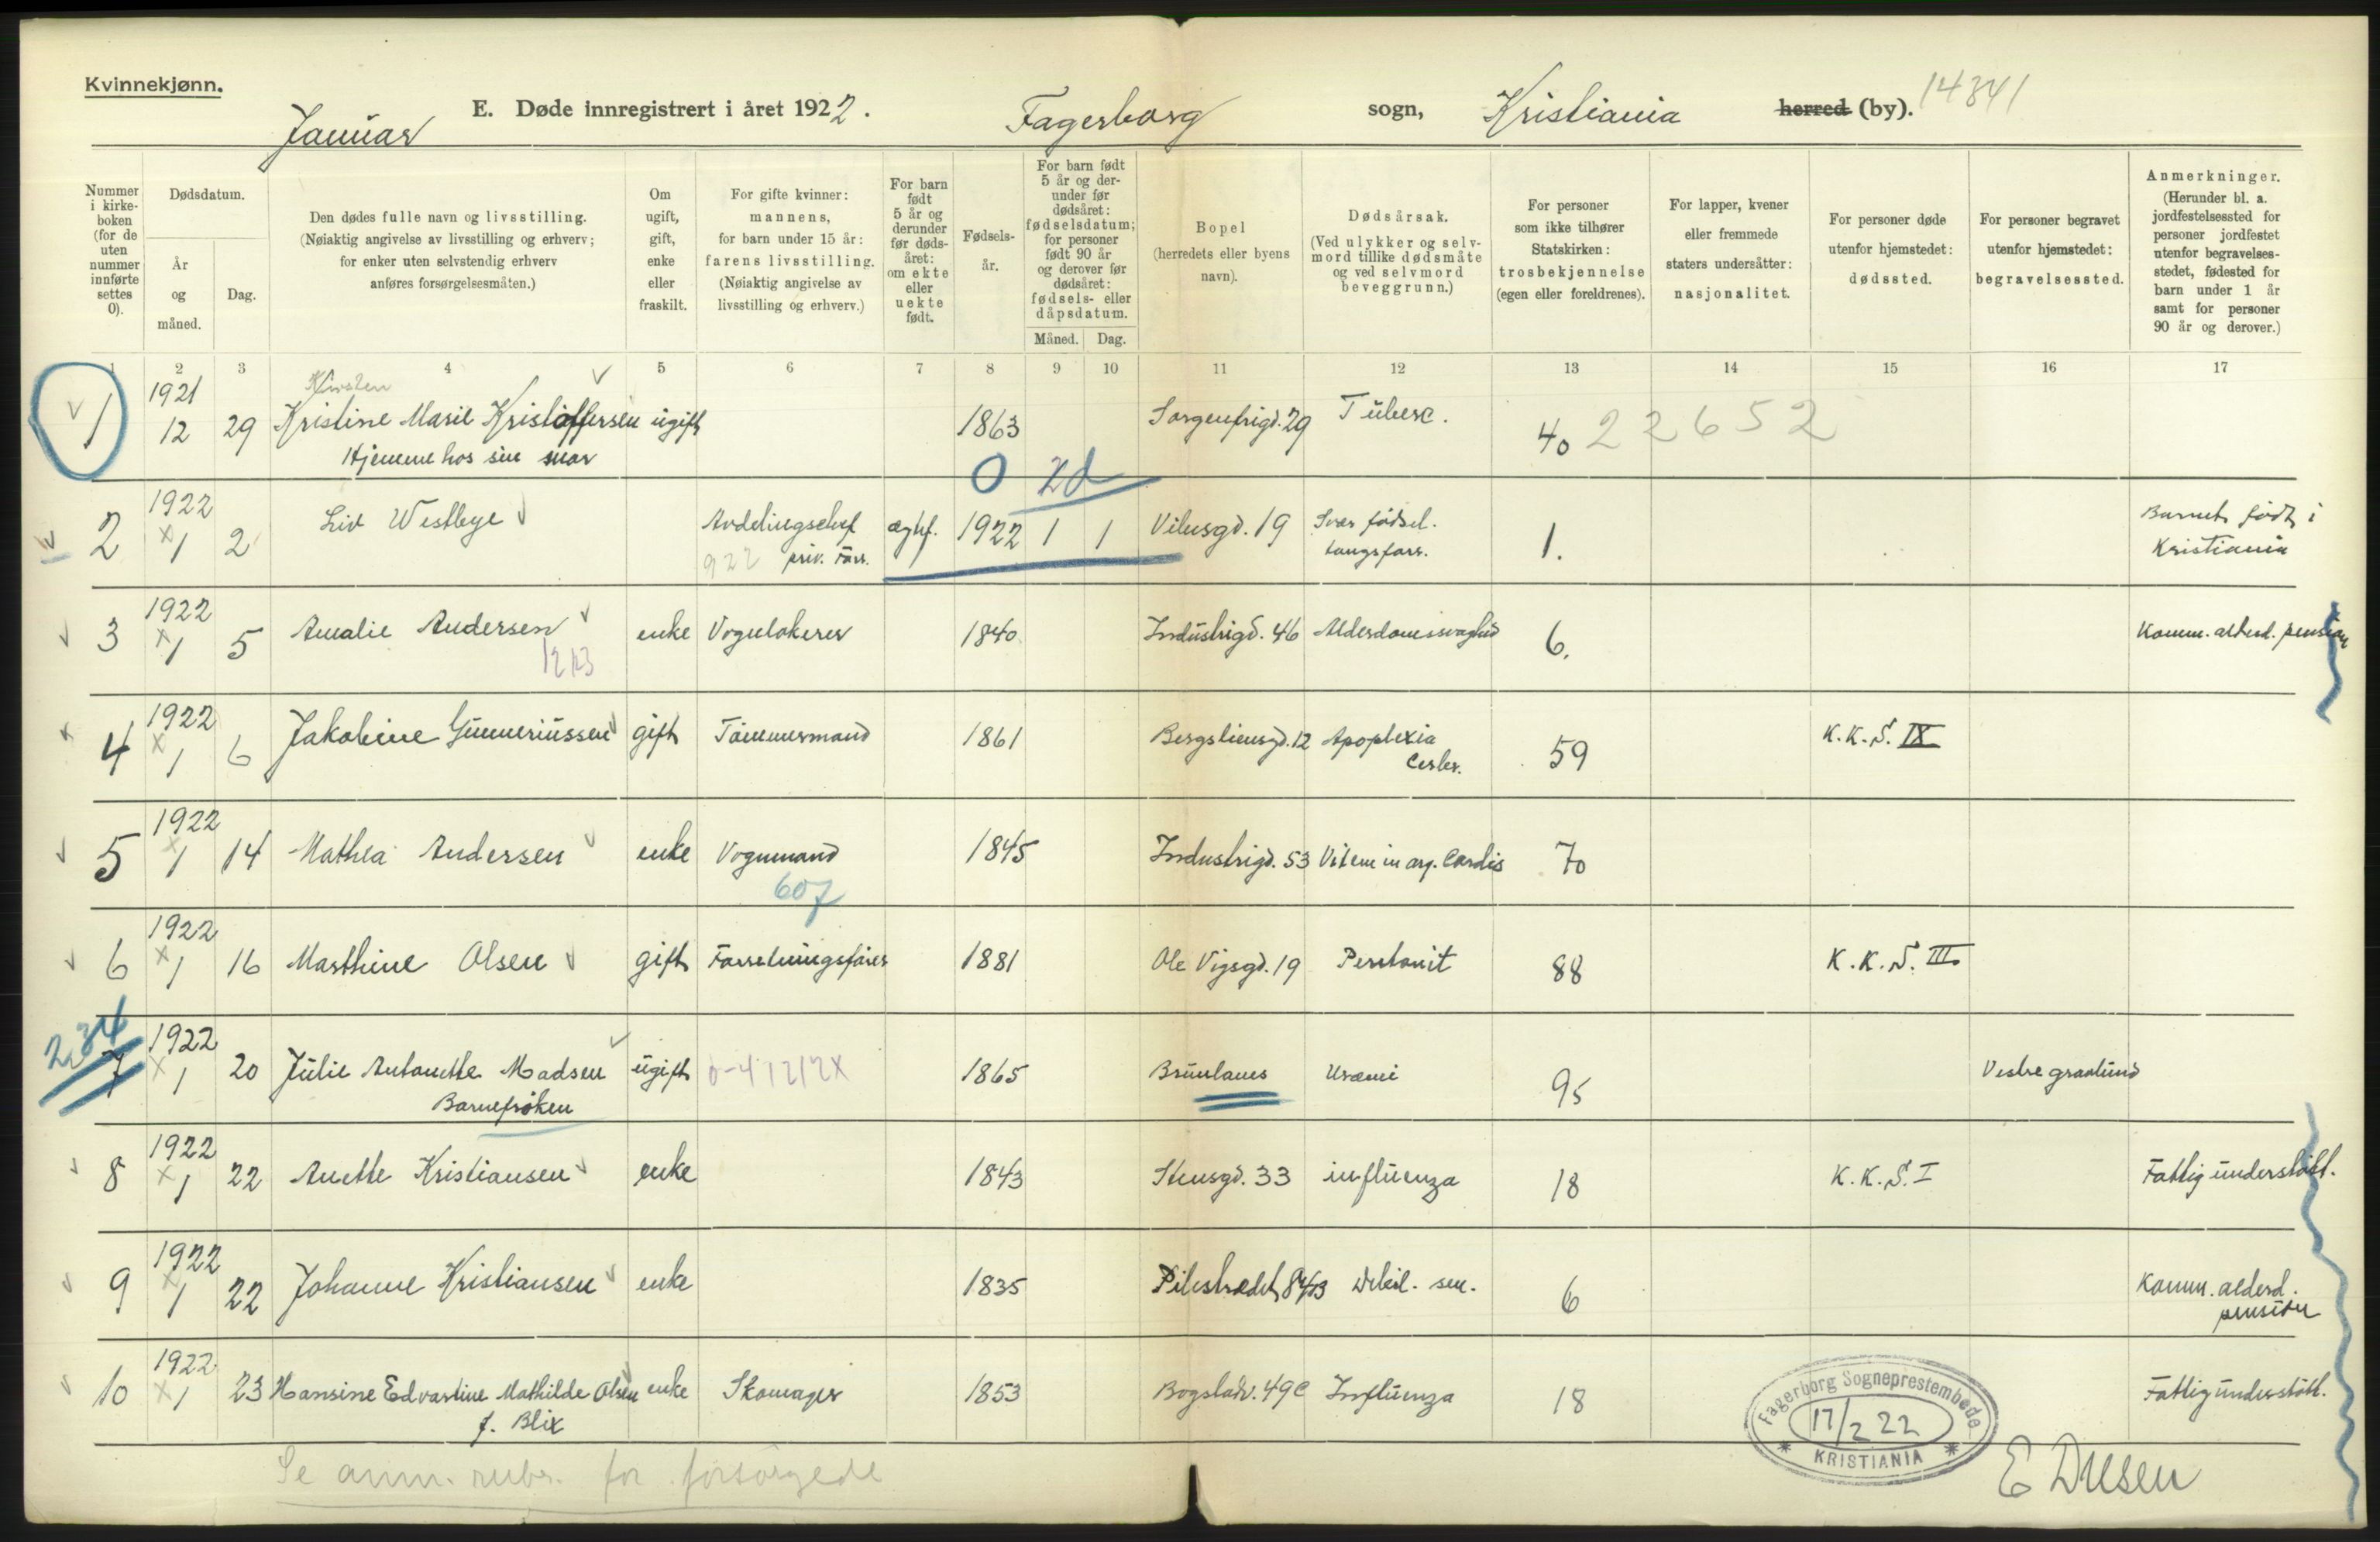 Kvinnekjønn.
Januar
E. Døde innregistrert i året 1922.
Fagerborg sogn, Kristiania herred (by).
14841
Nummer i kirkeboken (for de uten nummer innførte settes 0).
Dødsdatum.
År og måned.
Dag.
Den dødes fulle navn og livsstilling.
(Nøiaktig angivelse av livsstilling og erhverv;
for enker uten selvstendig erhverv
anføres forsørgelsesmåten.)
Om ugift, gift, enke eller fraskilt.
For gifte kvinner:
mannens,
for barn under 15 år:
farens livsstilling.
(Nøiaktig angivelse av
livsstilling og erhverv.)
For barn født 5 år og derunder før dødsåret: om ekte eller uekte født.
Fødselsår.
For barn født 5 år og derunder før dødsåret: fødselsdatum; for personer født 90 år og derover før dødsåret: fødsels- eller dåpsdatum.
Måned. Dag.
Bopel
(herredets eller byens navn).
Dødsårsak.
(Ved ulykker og selvmord tillike dødsmåte og ved selvmord beveggrunn.)
For personer
som ikke tilhører
Statskirken:
trosbekjennelse
(egen eller foreldrenes).
For lapper, kvener
eller fremmede
staters undersåtter:
nasjonalitet.
For personer døde
utenfor hjemstedet:
dødssted.
For personer begravet
utenfor hjemstedet:
begravelsessted.
Anmerkninger.
(Herunder bl. a. jordfestelsessted for personer jordfestet utenfor begravelsesstedet, fødested for barn under 1 år samt for personer 90 år og derover.)
1 2 3 4 5 6 7 8 9 10 11 12 13 14 15 16 17
Kirsten
1 1921 12 29 Kristine Marie Kristoffersen ugift 1863 Sorgenfrigd. 29 Tuberc. 40 22652
Hjemme hos sin mor
0 2d
2 1922 1 2 Liv Westbye Avdelingschef ægtef. 1922 1 1 Vibesgd. 19 Svær fødsel. 1. Barnet født i
922 priv. Forr. tangforr. Kristiania
3 1922 1 5 Amalie Andersen enke Vognlakerer 1840 Industrigd. 46 Alderdomssvaghed 6. Komm. alderd. pension
1213
4 1922 1 6 Jakobine Gunneriussen gift Tømmermand 1861 Bergsliensgd. 12 Apoplexia 59 K.K.S. IX
Cerbr.
5 1922 1 14 Mathea Andersen enke Vognmand 1845 Industrigd. 53 Vitium in org. Cordis 70
607
6 1922 1 16 Marthine Olsen gift Forretningsfører 1881 Ole Vigsgd. 19 Peritonit 88 K.K.S. III
234
7 1922 1 20 Julie Antonette Madsen ugift 0-41212X 1865 Brunlanes Uræmi 95 Vestre gravlund
Barnefrøken
8 1922 1 22 Anette Kristiansen enke 1843 Stensgd. 33 influenza 18 K.K.S. I Fattigunderstøtt.
9 1922 1 22 Johanne Kristiansen enke 1835 Pilestrædet Debil. sen. 6 Komm. alderd.
pension
10 1922 1 23 Hansine Edvardine Mathilde Olsen enke Skomager 1853 Bogstadv. 49c Influenza 18 Fattigunderstøtt.
f. Blix
Se anm. rubr. for forsørgede
Fagerborg Sogneprestembede
17/2 22
KRISTIANIA